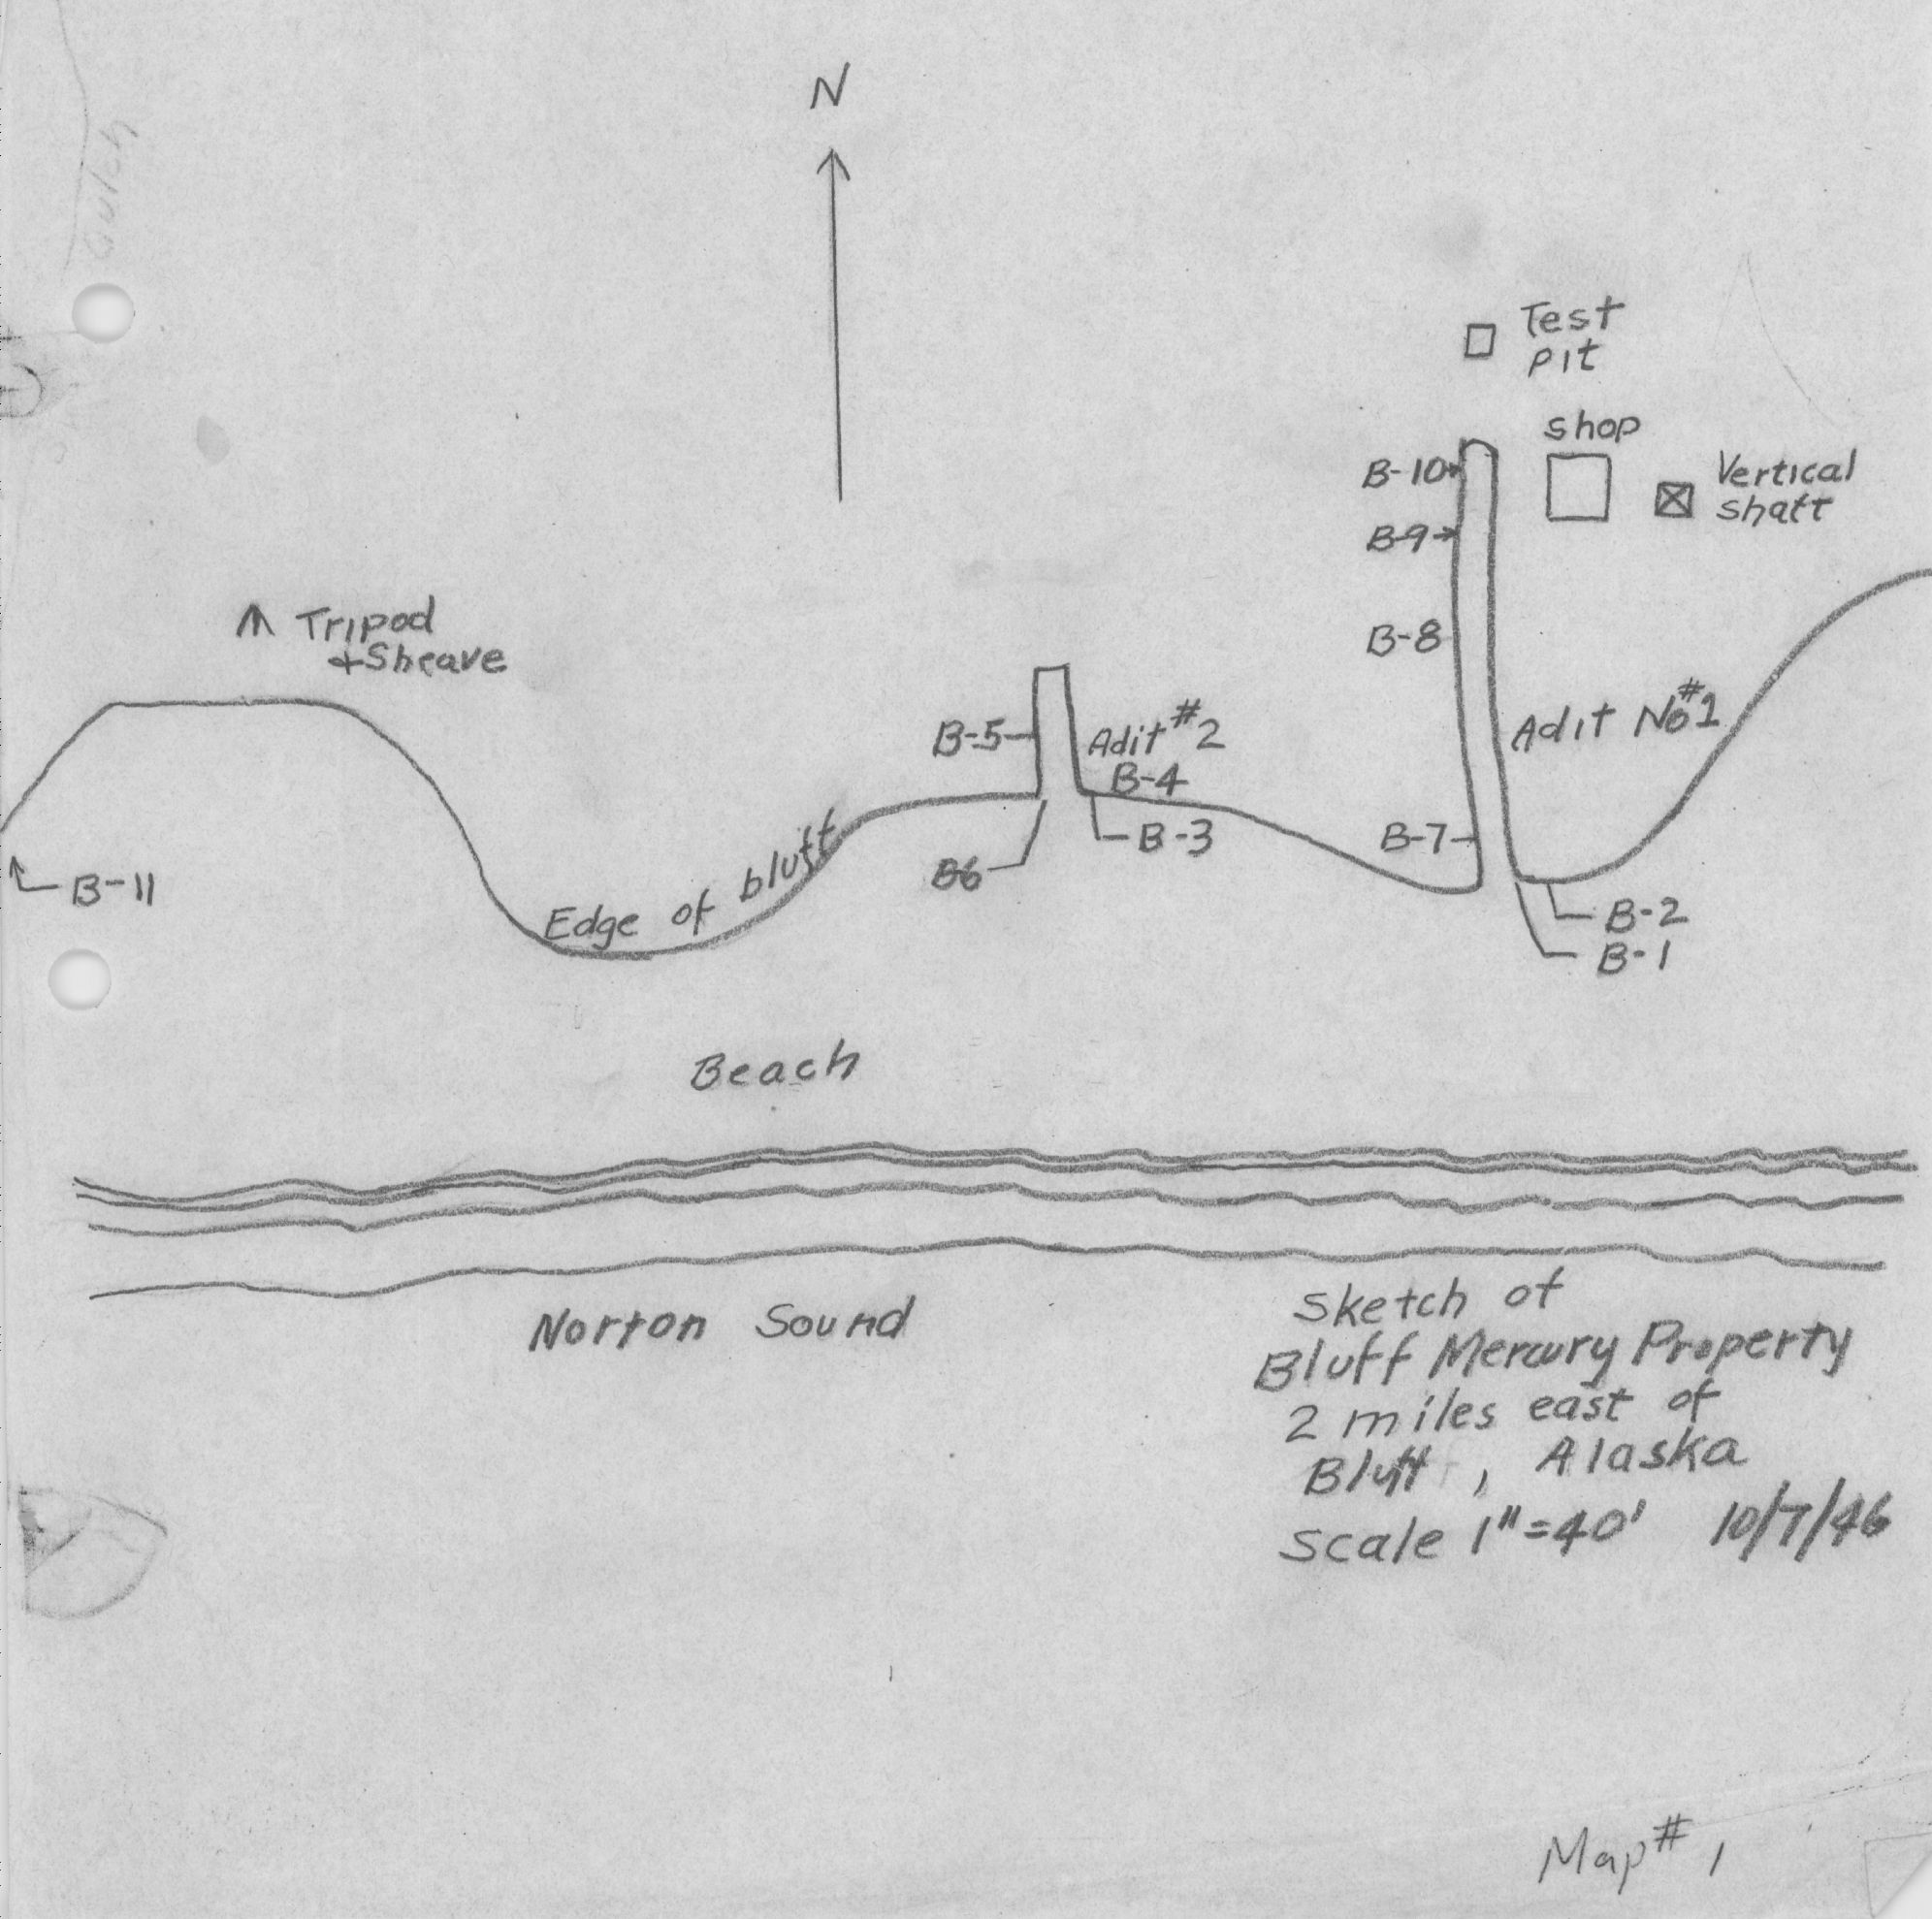 N
Gulch
Test
pit
shop
B-10
Vertical
shaft
B-9
Tripod
+Sheave
B-8
Adit No#1
B-5
Adit #2
B-4
B-7
B-3
B6
B-11
Edge of bluff
B-2
B-1
Beach
Norton Sound
Sketch of
Bluff Mercury Property
2 miles east of
Bluff, Alaska
Scale 1"=40' 10/7/46
Map # 1